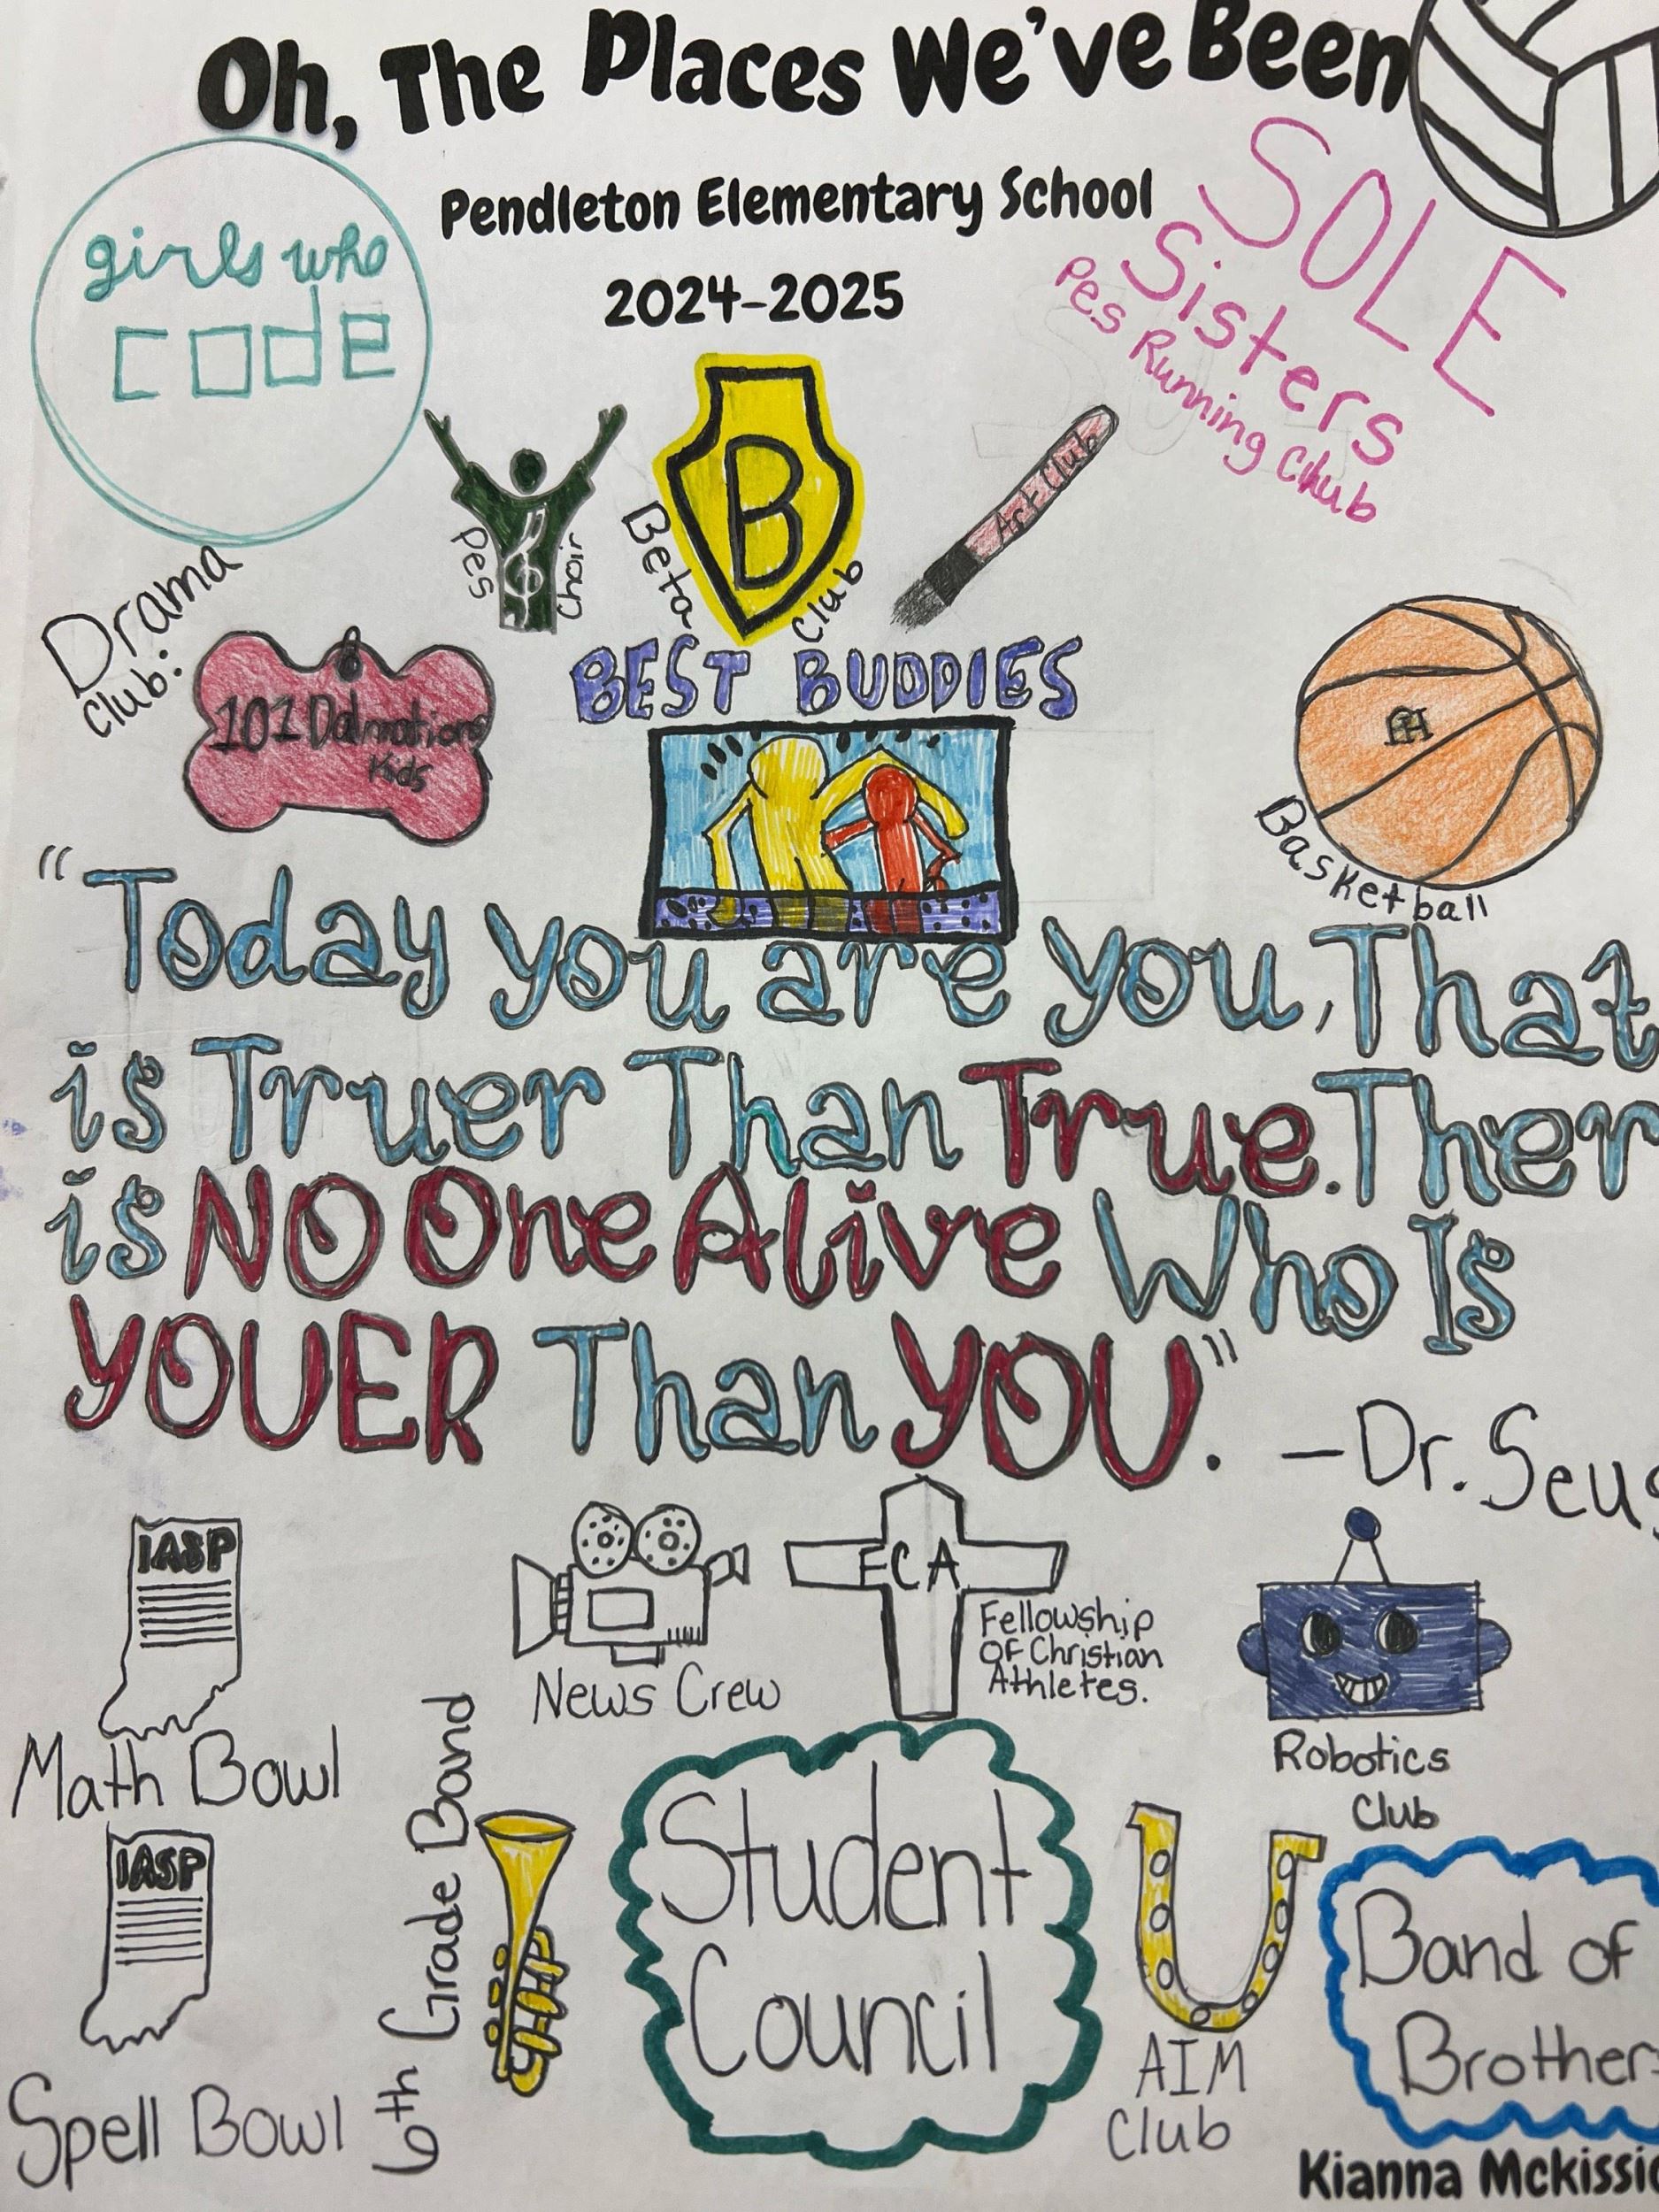 Oh, The Places We've Been
Pendleton Elementary School
2024-2025
girls who
code
SOLE
Sisters
Pes Running Club
Pes
Choir
Beta
B
Club
Art Club
Drama
Club:
101 Dalmations
Kids
BEST BUDDIES
PH
Basketball
"Today you are you, That
is Truer Than True. Ther
is NO One Alive Who Is
YOUER Than YOU".
-Dr. Seus
IASP
Math Bowl
News Crew
FCA
Fellowship
OF Christian
Athletes.
Robotics
Club
IASP
Spell Bowl
6th Grade Band
Student
Council
AIM
Club
Band of
Brothers
Kianna Mckissic